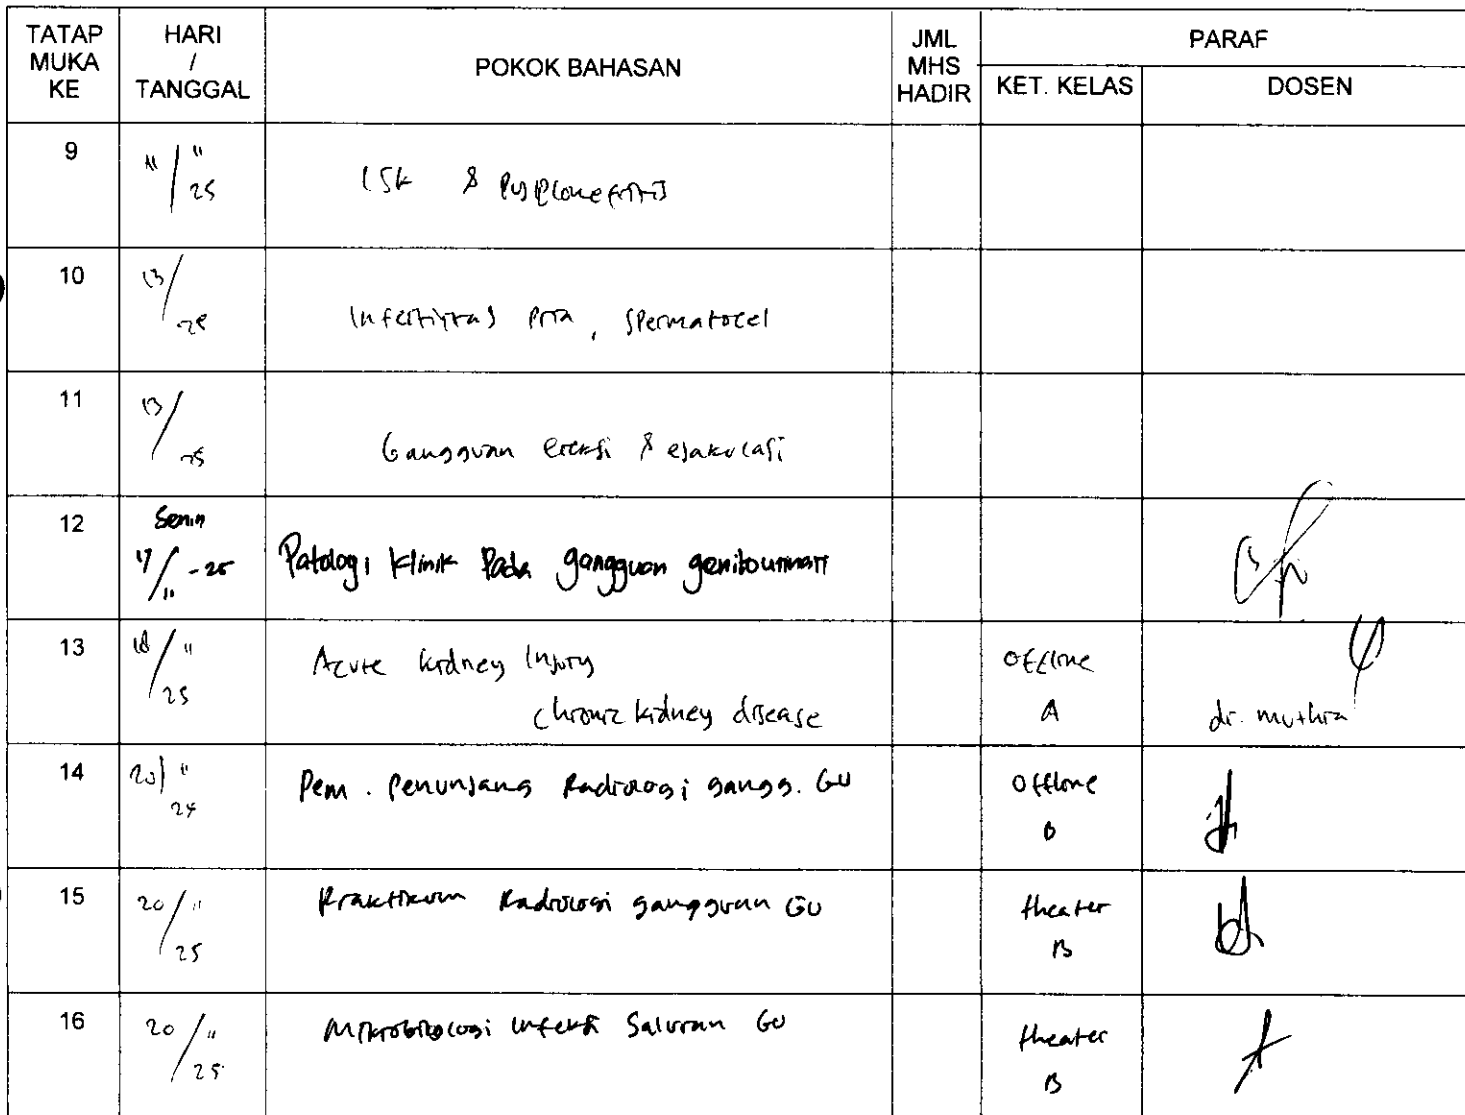 TATAP MUKA KE HARI / TANGGAL POKOK BAHASAN JML MHS HADIR PARAF
KET. KELAS DOSEN
9 11/11 25 ISK & Pyelonefritis
10 13/ 25 Infertilitas Pria, Spermatocel
11 13/ 25 Gangguan ereksi & ejakulasi
12 Senin 17/11 - 25 Patologi Klinik Pada gangguan genitourinari
13 18/11 25 Acute kidney Injury Offline
chronic kidney disease A dr. muthia
14 20/11 24 Pem. Penunjang Radiologi gangg. GU Offline B
15 20/11 25 Praktikum Radiologi gangguan GU theater B
16 20/11 25 Mikrobiologi Infeksi Saluran GU theater B